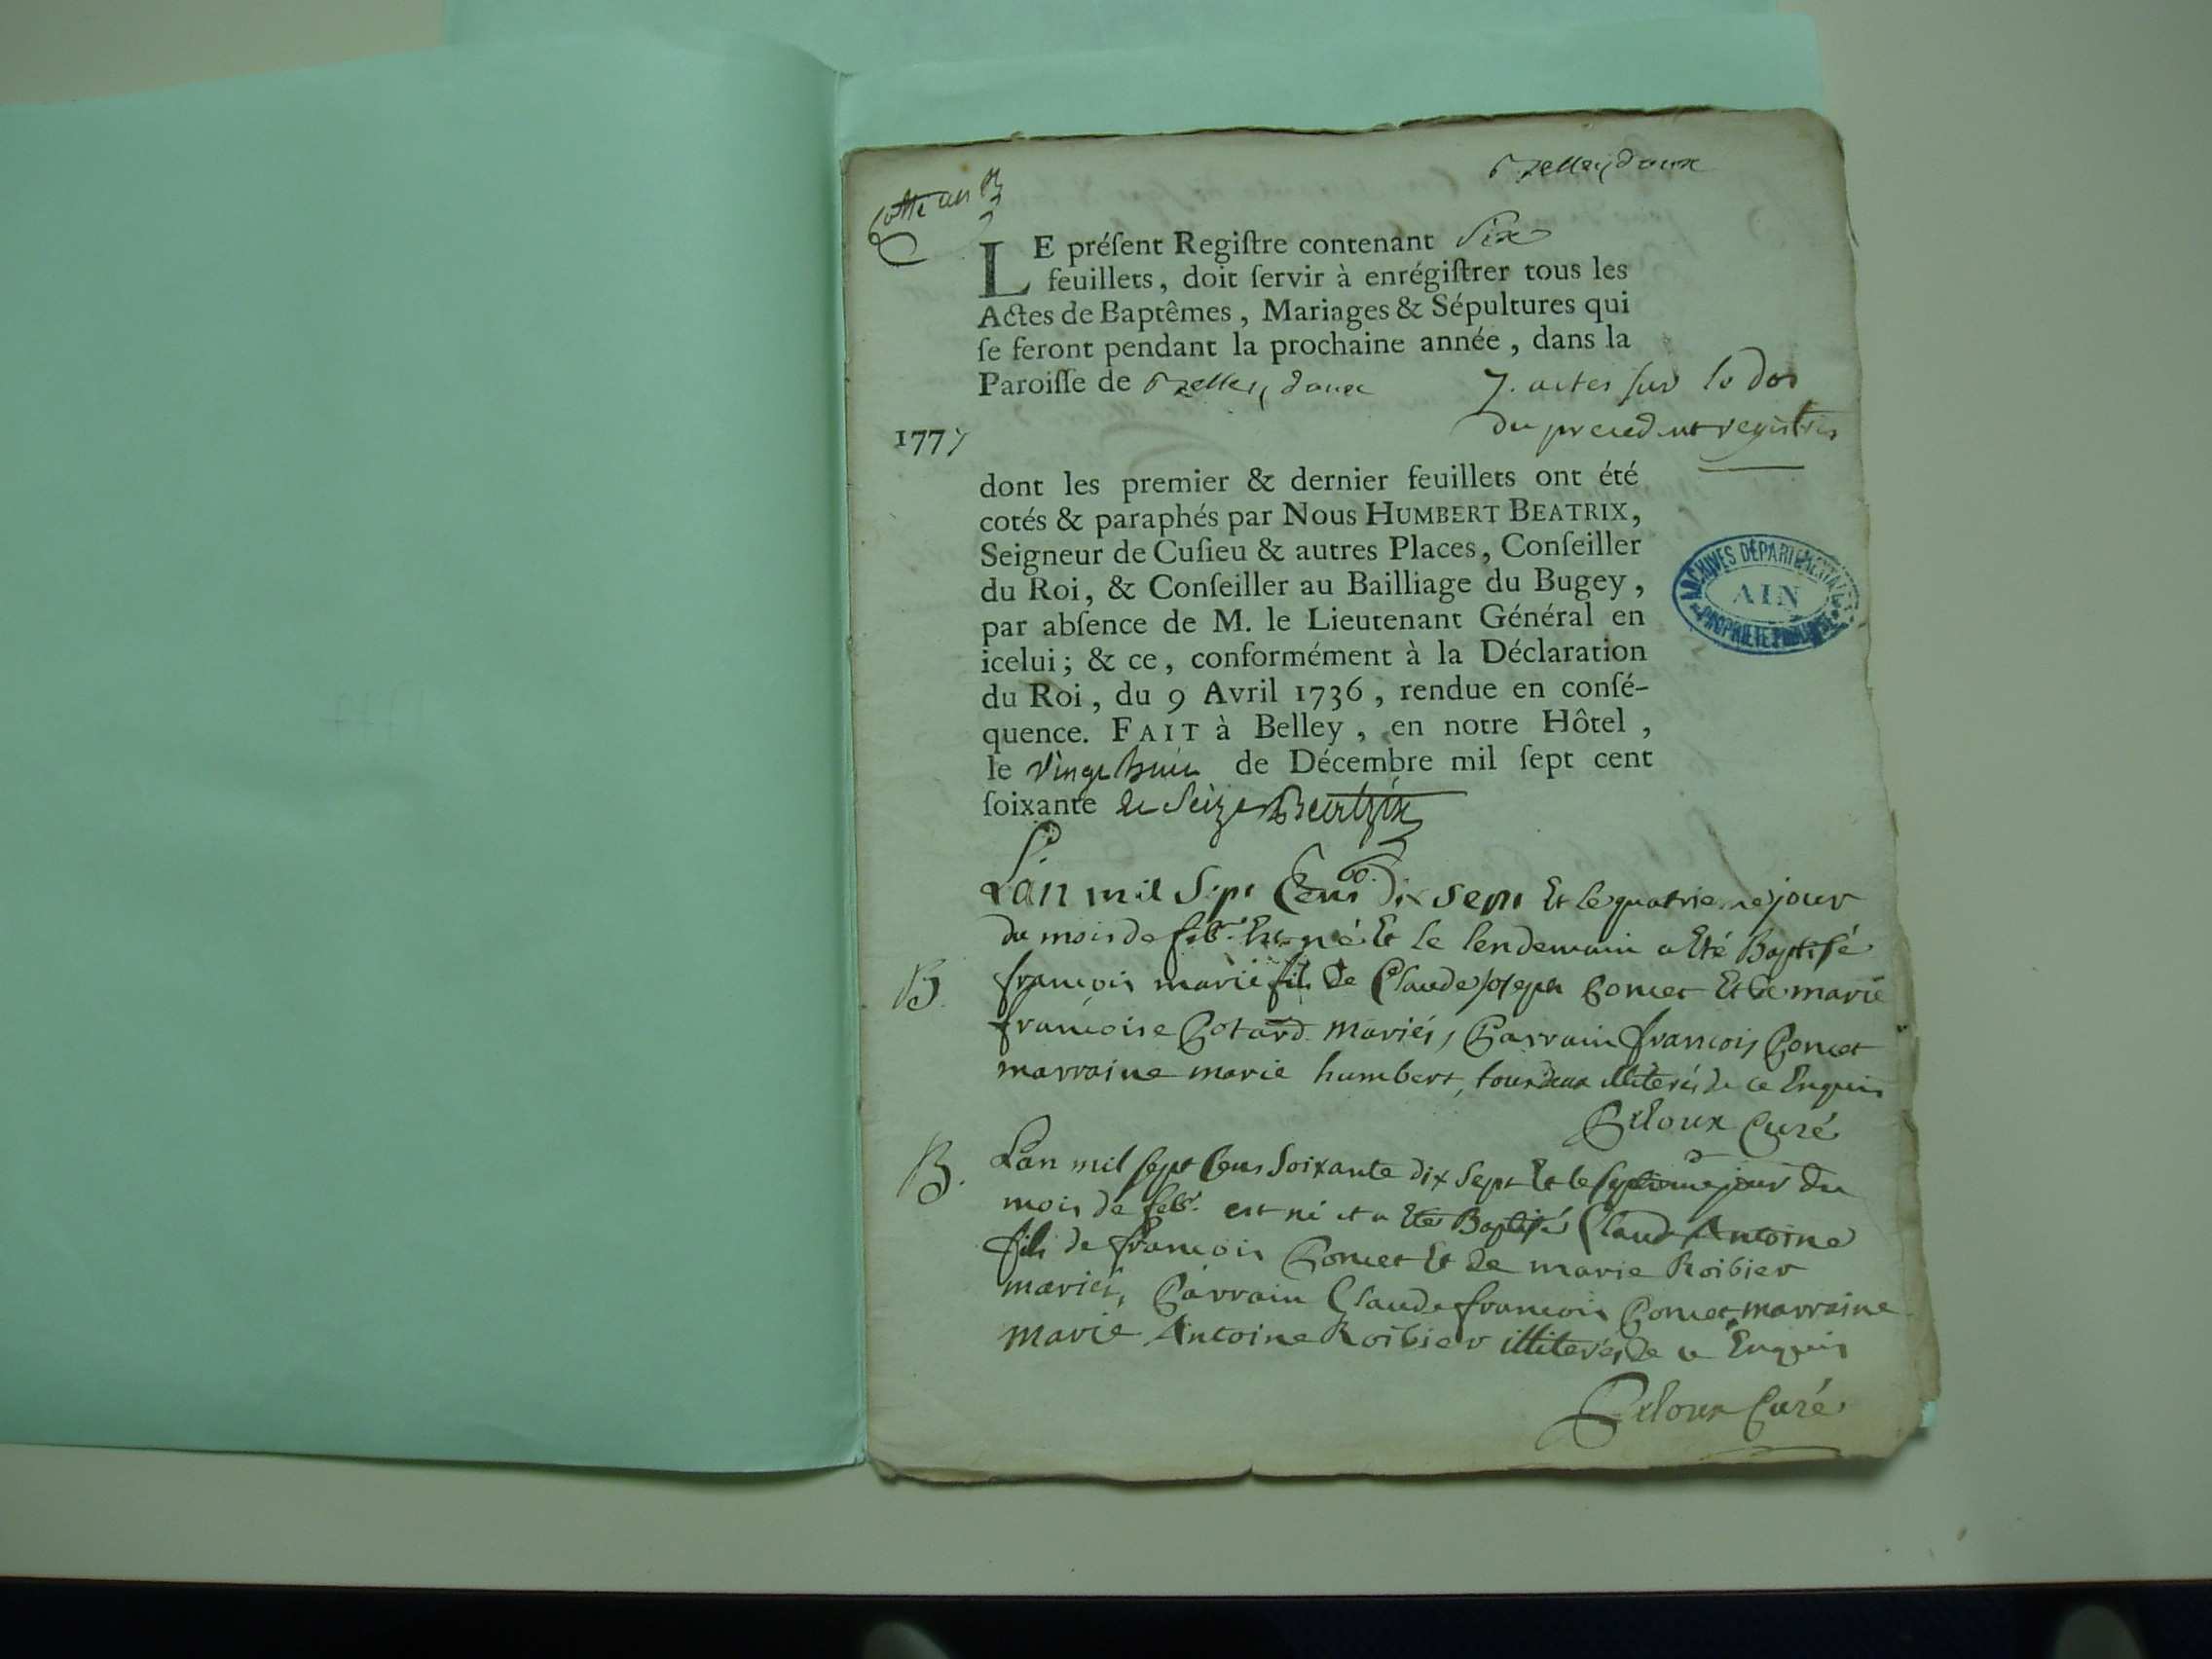 Cotte un B
Brelleydoux
LE préſent Regiſtre contenant Six
feuillets, doit ſervir à enrégiſtrer tous les
Actes de Baptêmes, Mariages & Sépultures qui
ſe feront pendant la prochaine année, dans la
Paroiſſe de
7. actes sur le dos
du precedent registre
1777
dont les premier & dernier feuillets ont été
cotés & paraphés par Nous HUMBERT BEATRIX,
Seigneur de Cuſieu & autres Places, Conſeiller
du Roi, & Conſeiller au Bailliage du Bugey,
par abſence de M. le Lieutenant Général en
icelui; & ce, conformément à la Déclaration
du Roi, du 9 Avril 1736, rendue en conſé-
quence. FAIT à Belley, en notre Hôtel,
le vingt huit de Décembre mil ſept cent
ſoixante et Seize Beatrix
ARCHIVES DÉPARTEMENTALES
AIN
PROPRIÉTÉ PUBLIQUE
L'an mil Sept Cens 60. dix sept Et le quatrieme jour
du mois de febr. Est né Et le lendemain a Eté Baptisé
B. françois marie fils de Claude joseph Poncet Et de marie
françoise Potard mariés, Parrain françois Poncet
marraine marie humbert, tous deux illiterés de ce Enquis
Curé
B. L'an mil sept Cens Soixante dix Sept Et le septieme jour du
mois de febr. est né et a Eté Baptisé Claude Antoine
fils de françois Poncet Et de marie Roibier
mariés, Parrain Claude françois Poncet, marraine
marie Antoine Roibier illiterés de ce Enquis
Curé